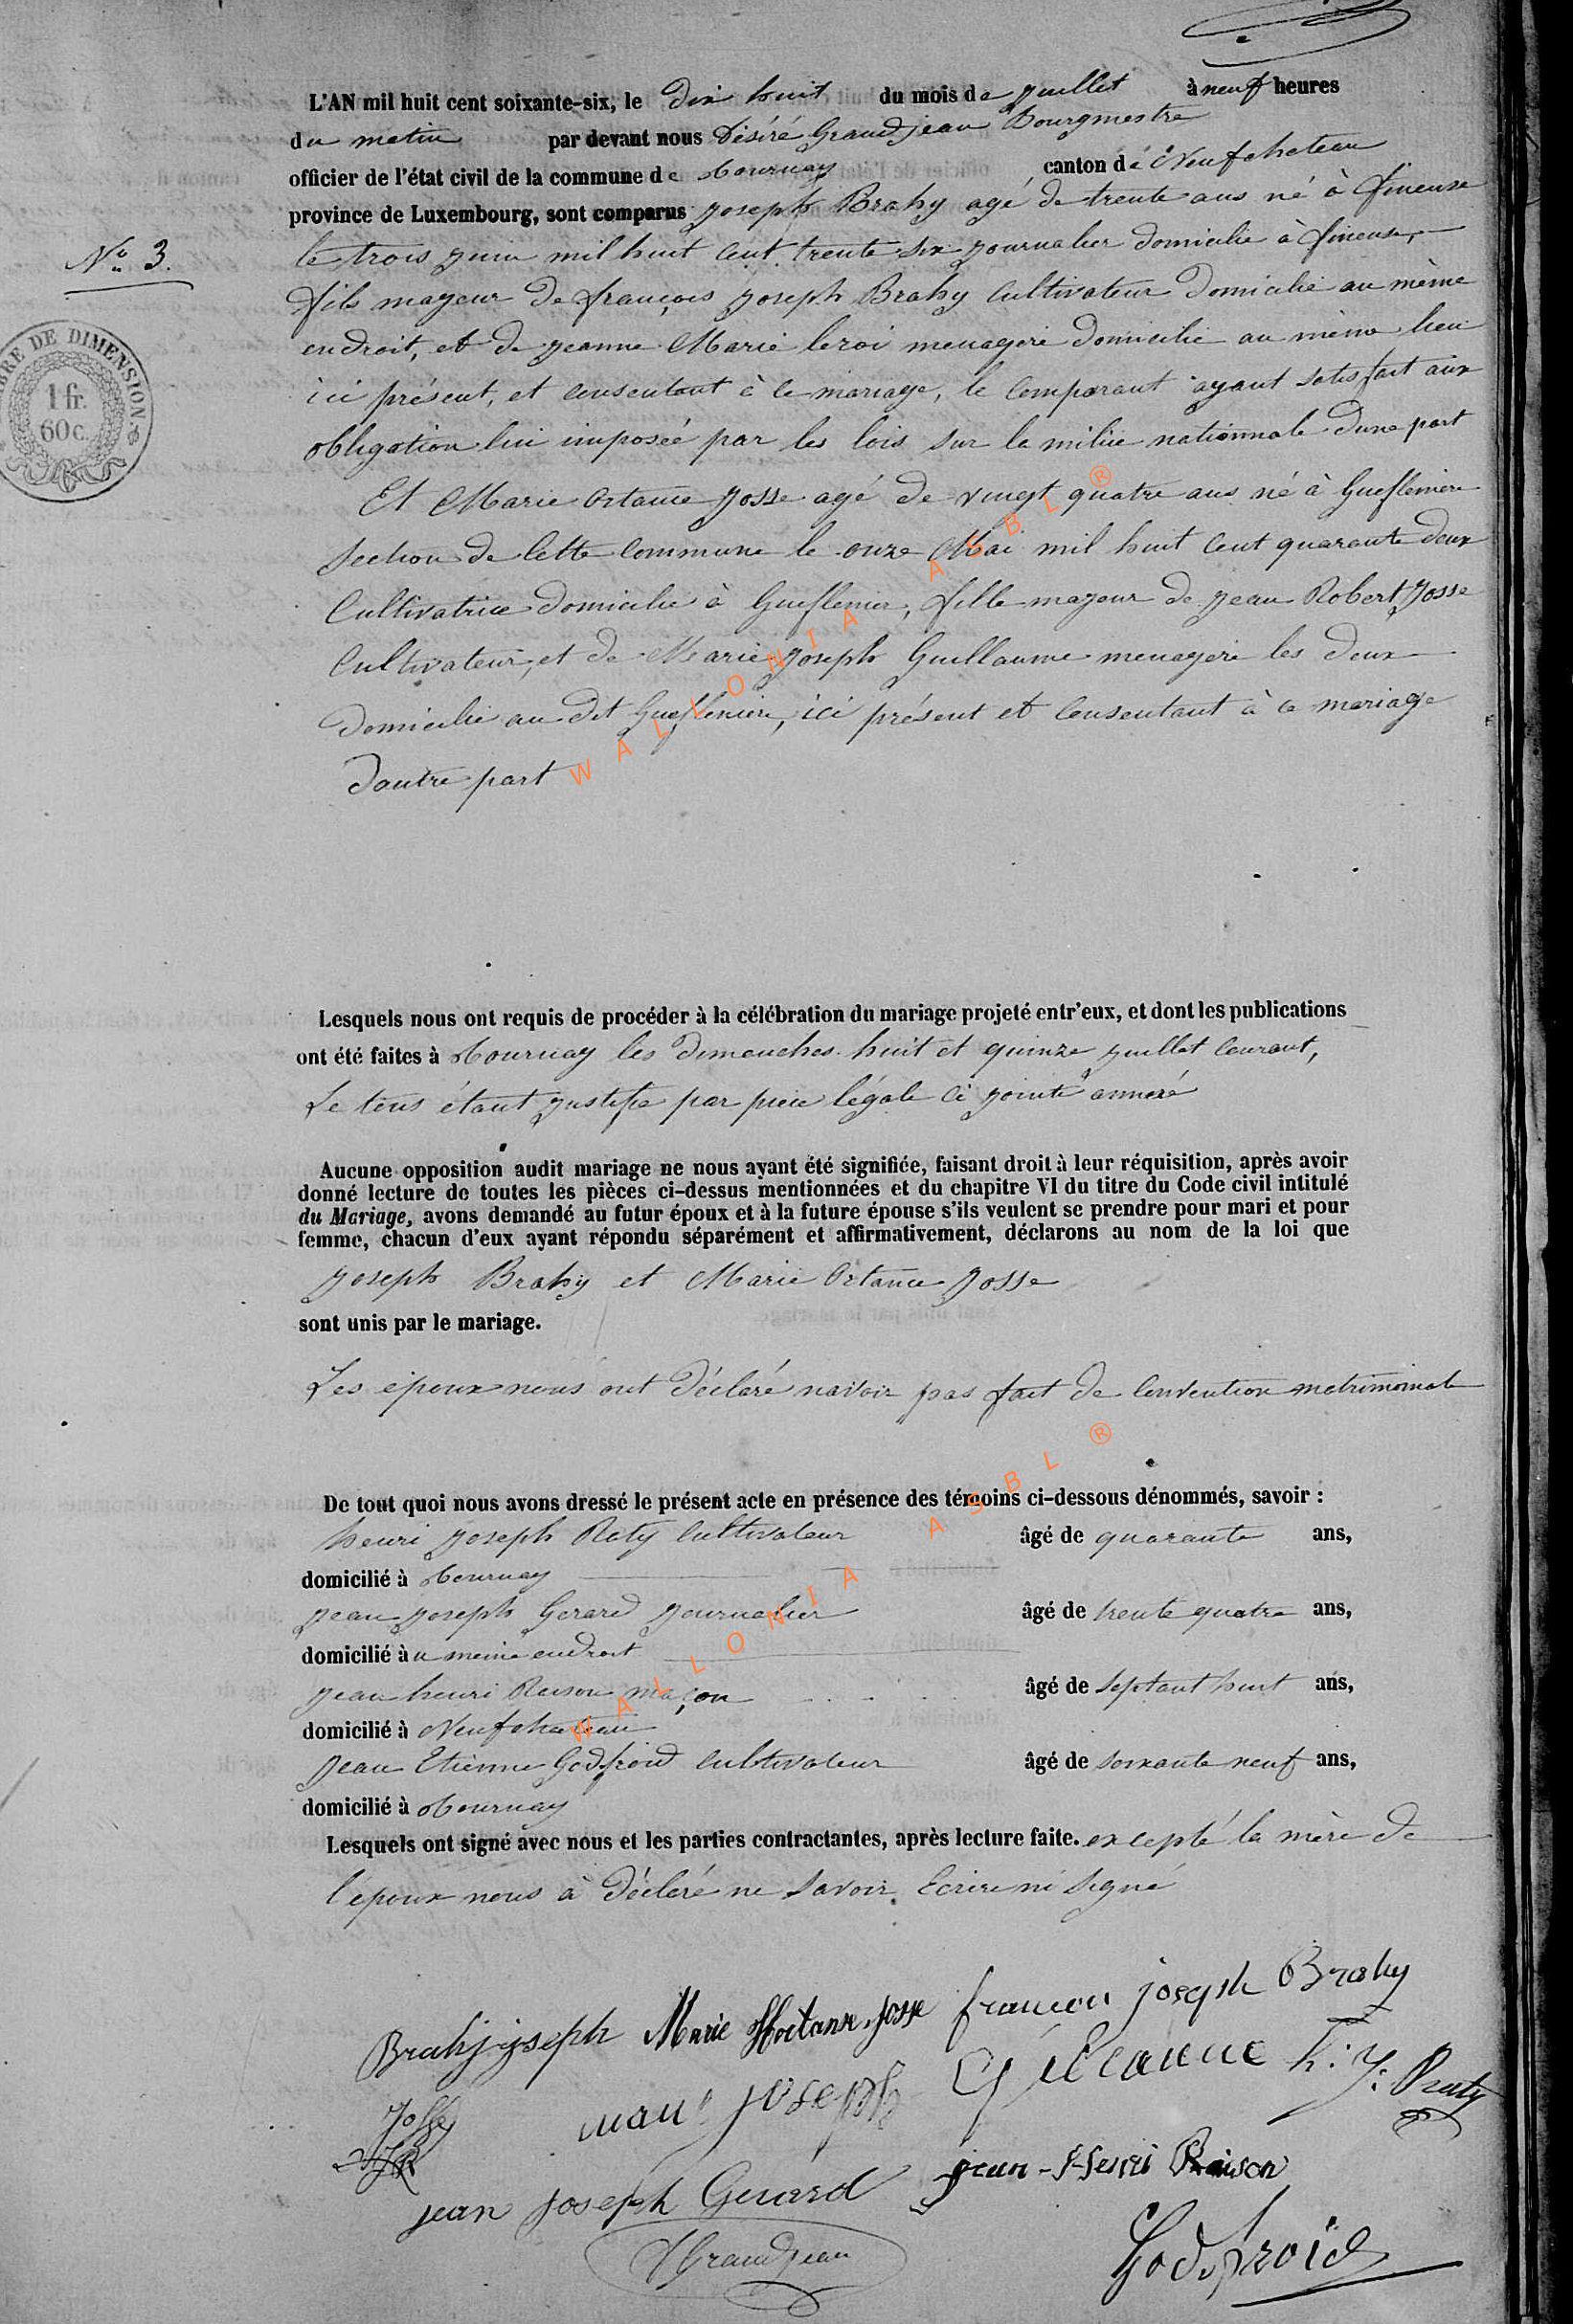 L'AN mil huit cent soixante-six, le dix huit du mois de juillet à neuf heures
du matin par devant nous Désiré Grandjean Bourgmestre
officier de l'état civil de la commune de Tournay canton de Neufchateau
province de Luxembourg, sont comparus joseph Brahy agé de trente ans né à fineuse
N° 3.
le trois juin mil huit cent trente six journalier domicilie à fineuse,
fils majeur de françois joseph Brahy cultivateur domicilie au même
endroit, et de jeanne Marie leroi menagere domicilie au même lieu
ici présent, et consentant à ce mariage, le comparant ayant satisfait aux
obligation lui imposée par les lois sur la milice nationnale dune part
TIMBRE DE DIMENSION
1 fr.
60 c.
Et Marie Ortance josse agé de vingt quatre ans né à Guefleniere
section de cette commune le onze Mai mil huit cent quarante deux
Cultivatrice domicilie à Gueflenier, fille majeur de jean Robert josse
Cultivateur, et de Marie joseph Guillaume menagere les deux
domicilie au dit Guefleniere, ici présent et consentant à ce mariage
dautre part
WALLONIA ASBL ®
Lesquels nous ont requis de procéder à la célébration du mariage projeté entr'eux, et dont les publications
ont été faites à Tournay les dimenches huit et quinze juillet courant,
Le tous étant justifie par piece légale ci jointe annexé
Aucune opposition audit mariage ne nous ayant été signifiée, faisant droit à leur réquisition, après avoir
donné lecture de toutes les pièces ci-dessus mentionnées et du chapitre VI du titre du Code civil intitulé
du Mariage, avons demandé au futur époux et à la future épouse s'ils veulent se prendre pour mari et pour
femme, chacun d'eux ayant répondu séparément et affirmativement, déclarons au nom de la loi que
joseph Brahy et Marie Ortance josse
sont unis par le mariage.
Les époux nous ont déclaré navoir pas fait de convention matrimonial
De tout quoi nous avons dressé le présent acte en présence des témoins ci-dessous dénommés, savoir :
henri joseph Raty cultivateur âgé de quarante ans,
domicilié à Tournay
jean joseph Gerard journalier âgé de trente quatre ans,
domicilié au meme endroit
jean henri Raison maçon âgé de septant huit ans,
domicilié à Neufchateau
jean Etienne Godfroid cultivateur âgé de soixante neuf ans,
domicilié à Tournay
WALLONIA ASBL ®
Lesquels ont signé avec nous et les parties contractantes, après lecture faite. excepté la mère de
l'époux nous à déclaré ne savoir Ecrire ni signé
Brahy joseph Marie Hortanse josse francois joseph Brahy
Josse marie joseph Guillaume h: j: Raty
JR
jean joseph Gerard jean-Henri Raison
Grandjean Godfroid